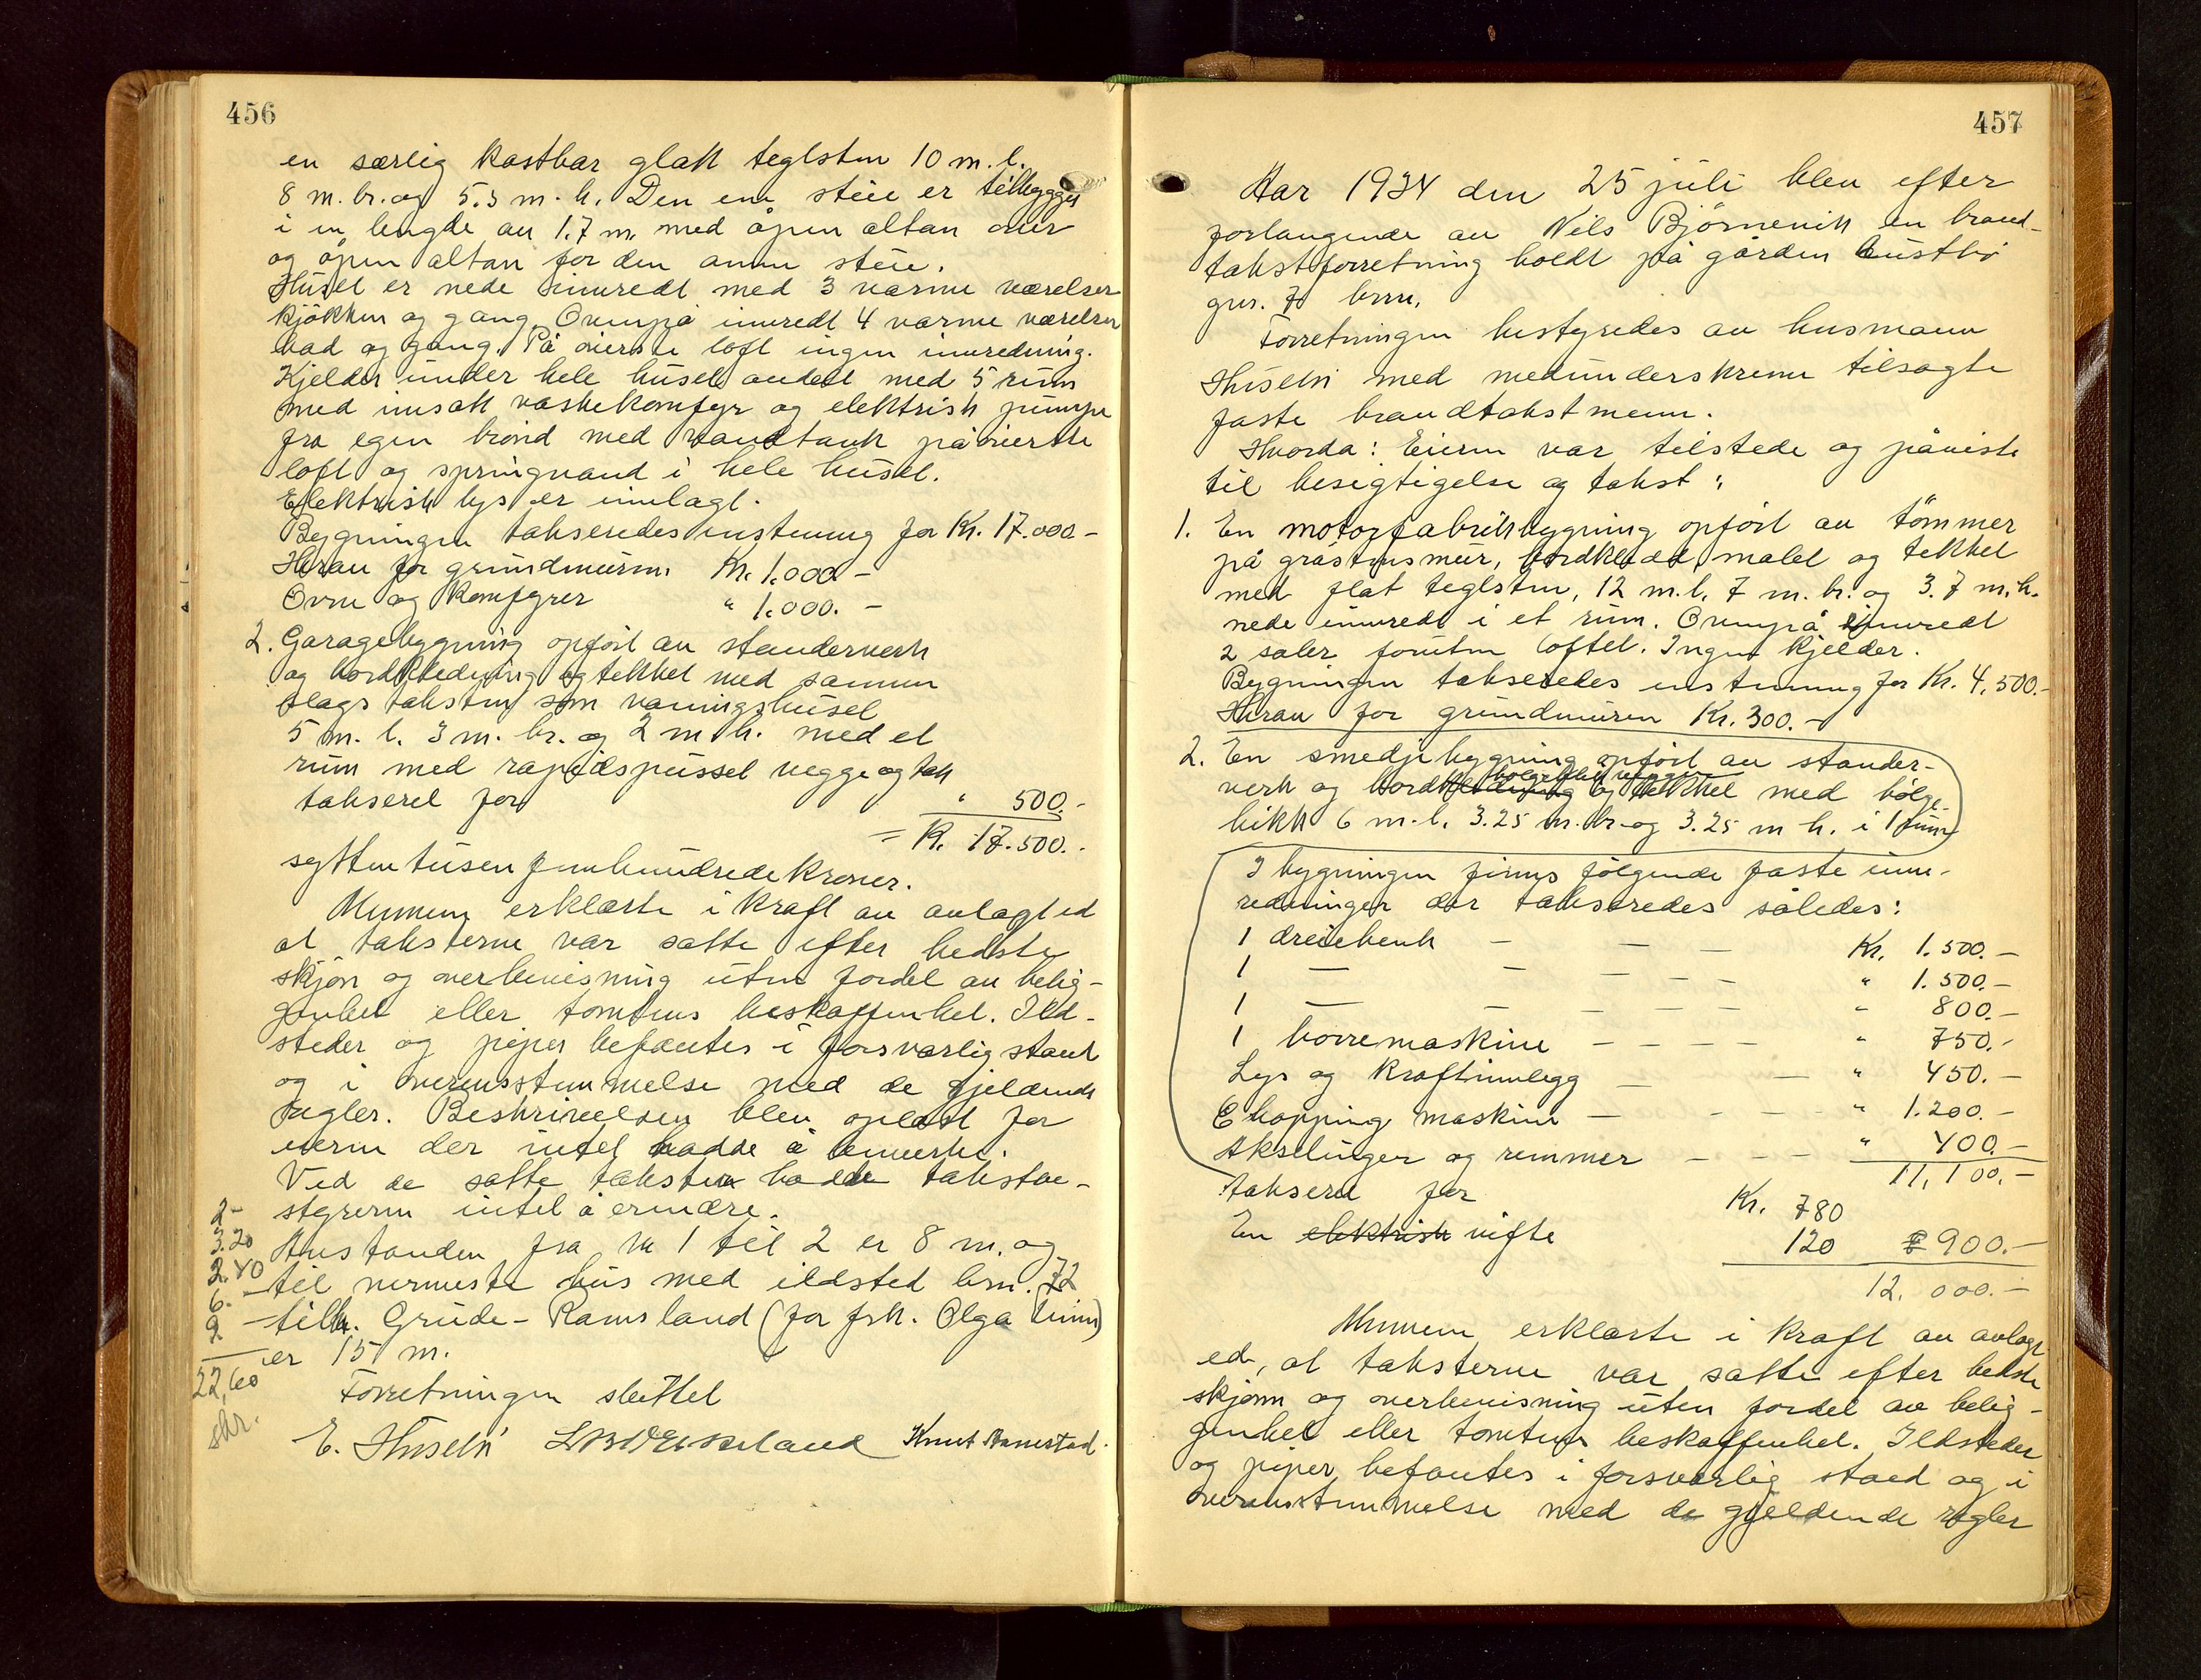 456
en særlig kostbar glatt teglsten 10 m. l.
8 m. br. og 5.5 m. h. Den ene side er tilbygget
i en lengde av 1.7 m. med åpen altan over
og åpen altan for den annen side.
Huset er nede innredt med 3 varme værelser
kjøkken og gang. Ovenpå innredt 4 varme værelser
bad og gang. På øverste loft ingen innredning.
Kjelder under hele huset avdelt med 5 rum
med innsatt vaskekomfyr og elektrisk pumpe
fra egen brønd med vandtank på øverste
loft og springvand i hele huset.
Elektrisk lys er innlagt.
Bygningen takseredes enstemmig for Kr. 17.000.-
Herav for grundmuren Kr. 1.000.-
Ovne og Komfyrer " 1.000.-
2. Garagebygning opført av standerverk
og bordkledning og tekket med samme
slags taksten som våningshuset
5 m. l. 3 m. br. og 2 m. h. med et
rum med rapidspusset vegge og tak
taksert for " 500.-
= Kr. 17.500.-
sytten tusen femhundrede kroner.
Mennene erklærte i kraft av avlagt ed
at taksterne var satte efter bedste
skjøn og overbevisning uten fordel av belig-
genhet eller tomtens beskaffenhet. Ild-
steder og piper befantes i forsvarlig stand
og i overensstemmelse med de gjeldende
regler. Beskrivelsen blev oplest for
eieren der intet hadde å bemerke.
Ved de satte takster hadde takstbe-
styreren intet å erindre.
Avstanden fra nr 1 til 2 er 8 m. og
til nermeste hus med ildsted brn. 72
tilh. Grude-Ramsland (for frk. Olga Lima)
er 15 m.
Forretningen sluttet
E. Husebø Knut Hamestad.
2-
3.20
2.40
6.-
9.
22,60
skr.
457
Aar 1934 den 25 juli blev efter
forlangende av Nils Bjørnevik en brand-
takstforretning holdt på gården Austbø
gnr. 70 brn.
Forretningen bestyredes av husmann
Husebø med medunderskrevne tilsagte
faste brandtakstmenn.
Hvorda: Eieren var tilstede og påviste
til besigtigelse og takst:
1. En motorfabrikbygning opført av tømmer
på gråstensmur, bordkledd, malet og tekket
med flat teglsten, 12 m. l. 7 m. br. og 3.7 m. h.
nede innredt i et rum. Ovenpå innredt
2 saler foruten loftet. Ingen kjelder.
Bygningen takseredes enstemmig for Kr. 4,500.-
Herav for grundmuren Kr. 300.-
2. En smedjebygning opført av stander-
bølgeblikk vegger
verk og bordkledning og tekket med bølge-
blikk 6 m. l. 3.25 m. br. og 3.25 m h. i 1 rum
I bygningen finns følgende faste inn-
redninger der takseredes således:
1 dreiebenk - - - Kr. 1.500.-
1 — - - - - " 1.500.-
1 — - - - - - " 800.-
1 borremaskine - - - - " 750.-
Lys og Kraftinnlegg - - " 450.-
Chopping maskine - - - - " 1.200.-
Akslinger og remmer - - - " 400.-
11,100.-
taksert for Kr. 780
En elektrisk vifte 120 900.-
12.000.-
Mennene erklærte i kraft av avlagt
ed, at taksterne var satte efter bedste
skjønn og overbevisning uten fordel av belig-
genhet eller tomtens beskaffenhet. Ildsteder
og piper befantes i forsvarlig stand og i
overensstemmelse med de gjeldende regler